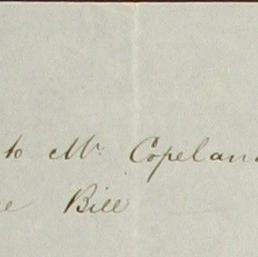 to Mr. Copelan
e Bill